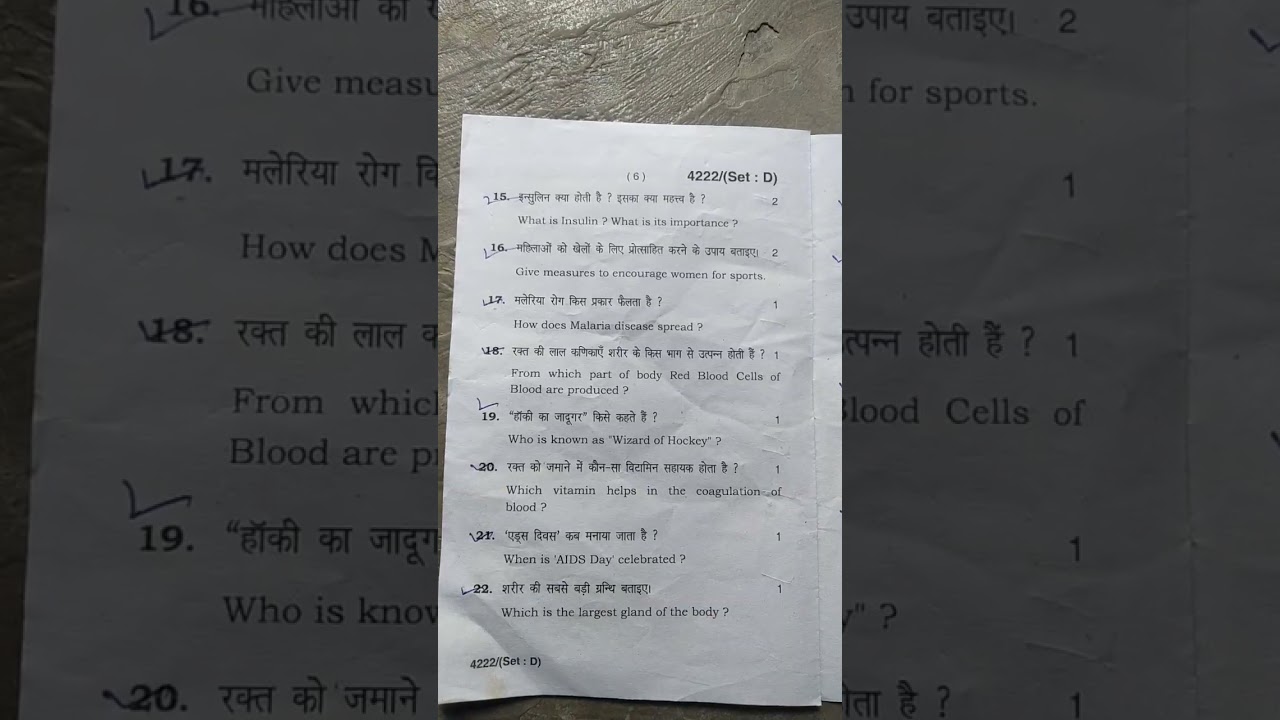 ( 6 ) 4222/(Set : D)
15. इन्सुलिन क्या होती है ? इसका क्या महत्त्व है ? 2
What is Insulin ? What is its importance ?
16. महिलाओं को खेलों के लिए प्रोत्साहित करने के उपाय बताइए। 2
Give measures to encourage women for sports.
17. मलेरिया रोग किस प्रकार फैलता है ? 1
How does Malaria disease spread ?
18. रक्त की लाल कणिकाएँ शरीर के किस भाग से उत्पन्न होती हैं ? 1
From which part of body Red Blood Cells of
Blood are produced ?
19. “हॉकी का जादूगर” किसे कहते हैं ? 1
Who is known as "Wizard of Hockey" ?
20. रक्त को जमाने में कौन-सा विटामिन सहायक होता है ? 1
Which vitamin helps in the coagulation of
blood ?
21. ‘एड्स दिवस’ कब मनाया जाता है ? 1
When is 'AIDS Day' celebrated ?
22. शरीर की सबसे बड़ी ग्रन्थि बताइए। 1
Which is the largest gland of the body ?
4222/(Set : D)